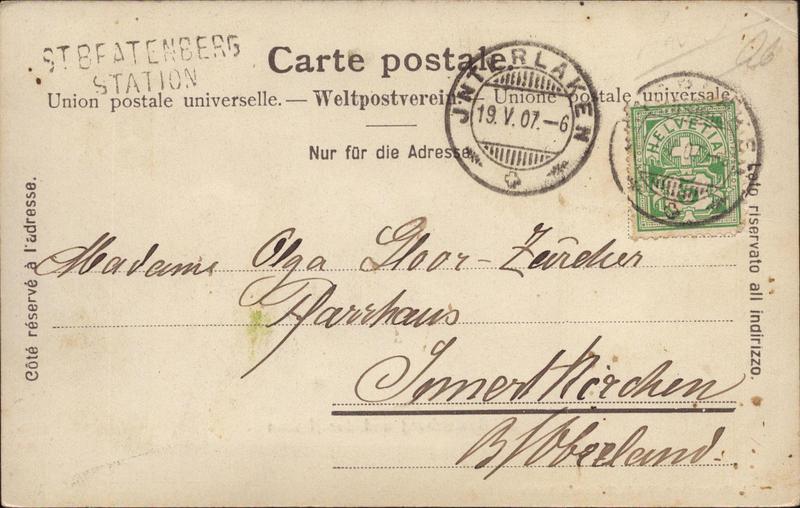 ST BEATENBERG
STATION
Carte postale.
Union postale universelle. — Weltpostverein. — Unione postale universale
Nur für die Adresse
JNTERLAKEN
19.V.07.–6
HELVETIA
Côté réservé à l'adresse.
Lato riservato all indirizzo.
Madame Olga Gloor-Zürcher
Pfarrhaus
Innertkirchen
B/Oberland.